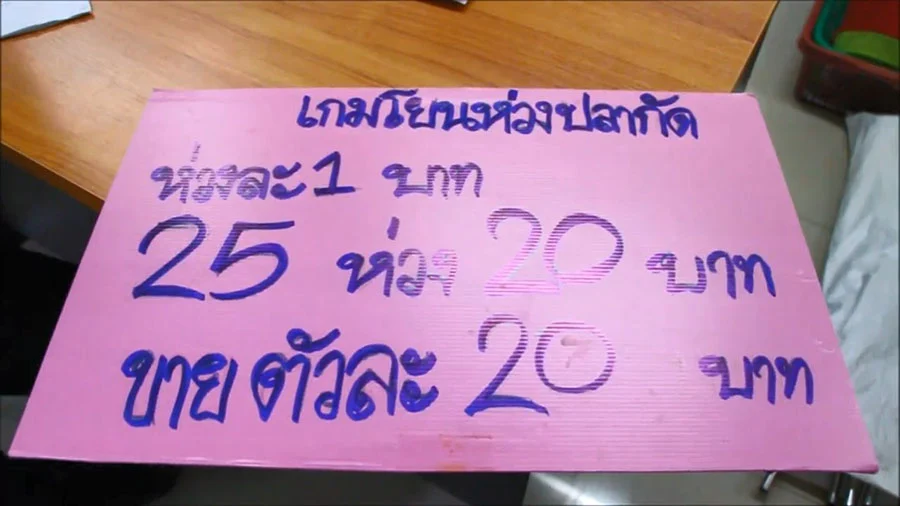 เกมโยนห่วงปลากัด
ห่วงละ 1 บาท
25 ห่วง 20 บาท
ขาย ตัวละ 20 บาท